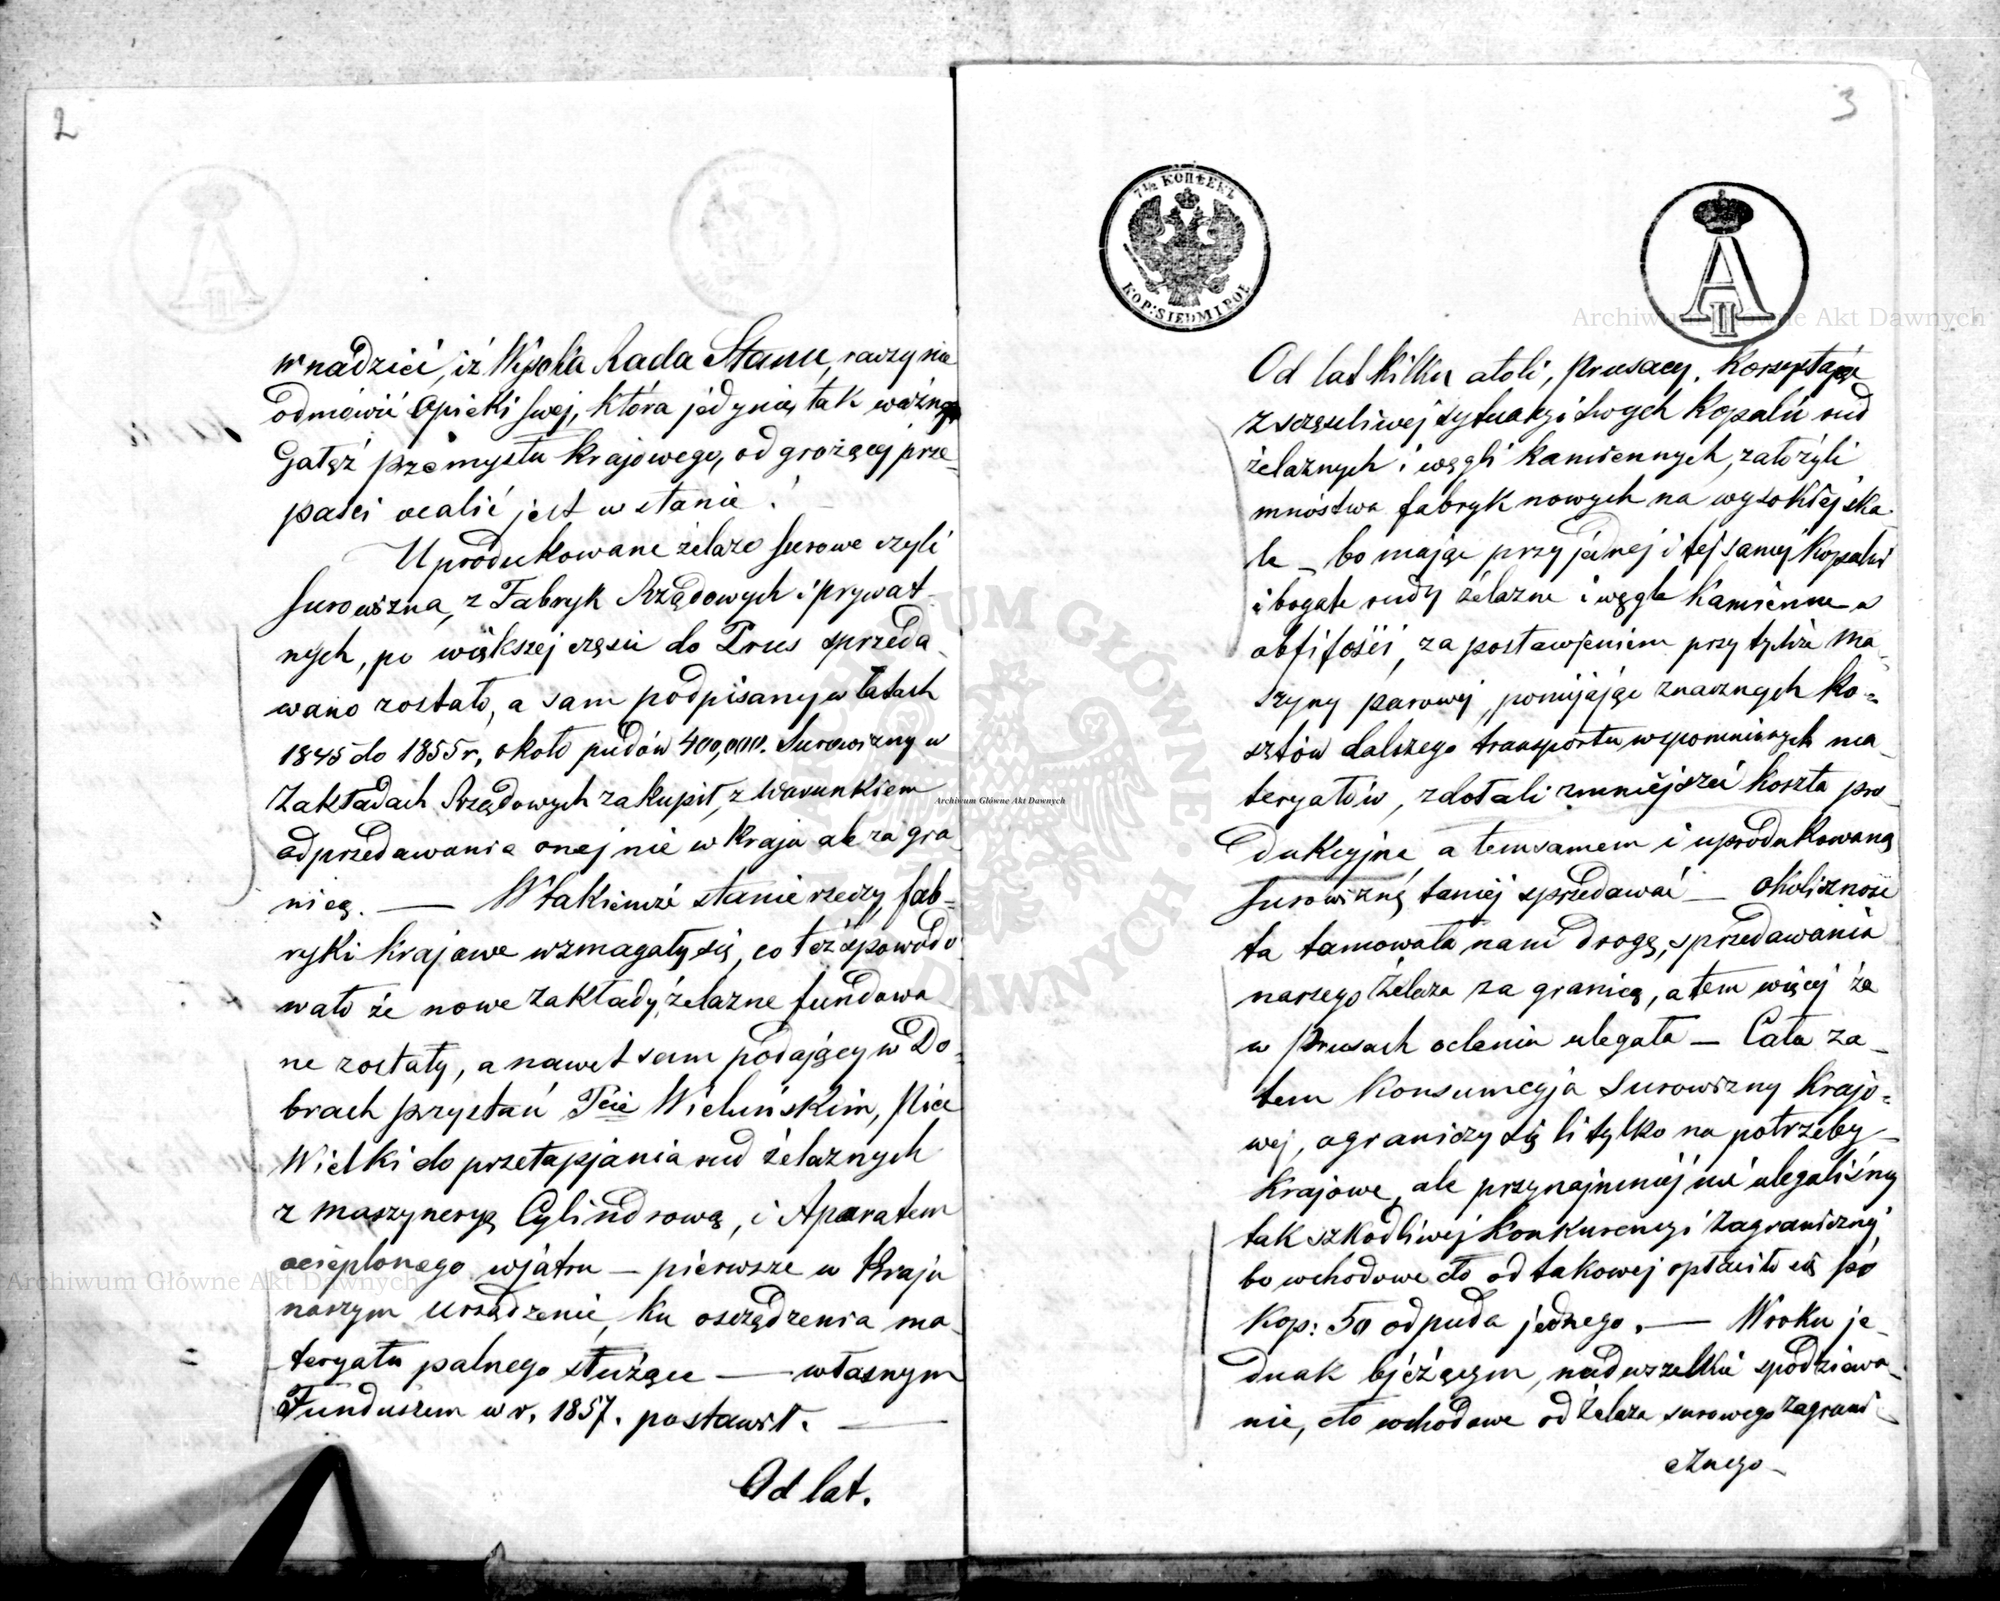 2
w nadzieі, iż Wysoka Rada Stanu, raczy nie
odmówić Opieki swej, która jedynie, tak ważną
Gałęź przemysłu krajowego, od grożącej prze-
paści ocalić jest w stanie.
Uprodukowane żelazo surowe czyli
surowizna, z Fabryk Rządowych i prywat-
nych, po większej części do Prus sprzeda-
wano zostało, a sam podpisany w latach
1845 do 1855 r, około pudów 400,000. Surowizny w
Zakładach Rządowych zakupił, z warunkiem
odprzedawania onej nie w Kraju ale za gra
nicą. — W takiemże stanie rzeczy, fab=
ryki krajowe wzmagały się, co też spowodo
wało że nowe zakłady żelazne fundowa
ne zostały, a nawet sam podający w Do-
brach przystań Pcie Wieluńskim, Piec
Wielki do przetapjania rud żelaznych
z maszyneryą Cylindrową, i Aparatem
ocieplonego wjatru — pierwsze w Kraju
naszym urządzenie, ku oszczędzenia ma-
teryału palnego służące — własnym
Funduszem w r. 1857. postawił. —
Od lat.
3
7 1/2 КОПѢЕКЪ
KOP: SIEDM I PÓŁ
A II
Od lat kilku atoli, prusacy, korzystając
z szczęśliwej sytuacyi swych kopalń rud
żelaznych i węgli kamiennych, założyli
mnóstwo fabryk nowych na wysokiej ska-
le — bo mając przy jednej i tej samej kopalni
i bogate rudy żelazne i węgle kamienne w
obfitości, za postawjeniem przy tychże ma-
szyny parowej, pomijając znacznych ko=
sztów dalszego transportu wspomnionych ma-
teryałów, zdołali zmniejszeć koszta pro
dukcyjne a temsamem i uprodukowaną
surowiznę taniej sprzedawać — okoliczność
ta tamowała nam drogę, sprzedawania
naszego żelaza za granicę, a tem więcej że
w Prusach ocleniu ulegała — Cała za-
tem Konsumcyja Surowizny krajo=
wej, ograniczy się li tylko na potrzeby
krajowe, ale przynajmniej nie ulegaliśmy
tak szkodliwej konkurencyi zagranicznej,
bo wchodowe cło od takowej opłaciło się po
kop: 50 od puda jednego. — W roku je-
dnak bjeżącym, nad wszelkie spodziewa-
nie, cło wchodowe od żelaza surowego zagrani-
cznego
Archiwum Główne Akt Dawnych
Archiwum Główne Akt Dawnych
Archiwum Główne Akt Dawnych
ARCHIWUM GŁÓWNE AKT DAWNYCH